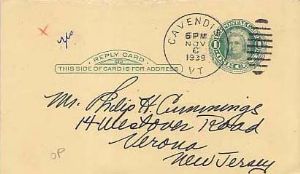 CAVENDISH
6 PM
NOV
6
1939
VT.
REPLY CARD
THIS SIDE OF CARD IS FOR ADDRESS
Mr. Philip H. Cummings
14 Westover Road
Verona
New Jersey
OP